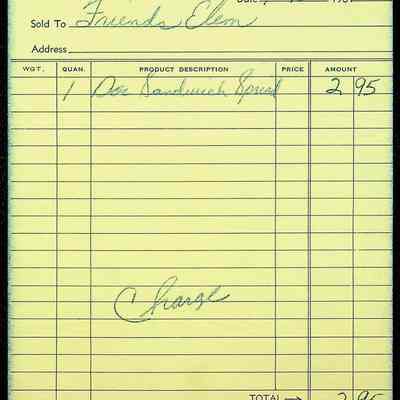 Sold To Friends Elem
Address
WGT. QUAN. PRODUCT DESCRIPTION PRICE AMOUNT
1 Doz Sandwich Spread 2 95
Charge
TOTAL → 2 95